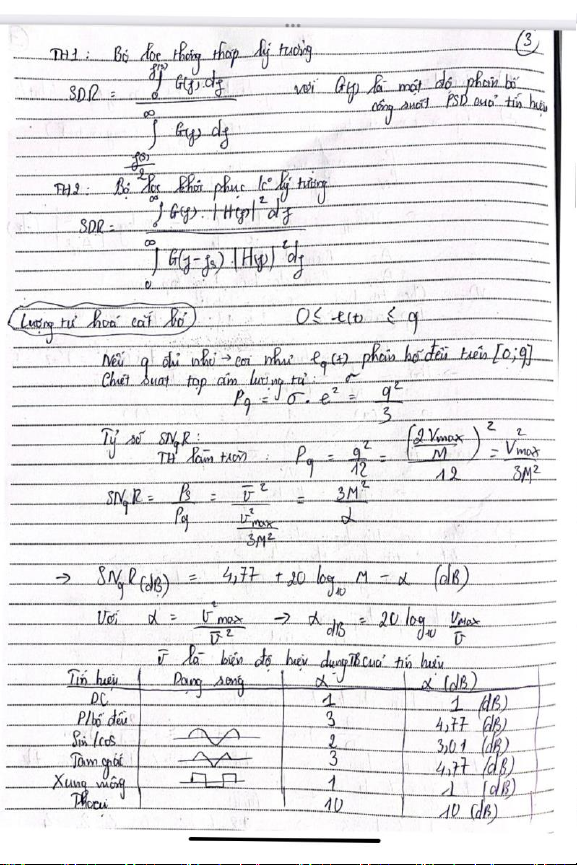 3
TH1: Bộ lọc thông thấp lý tưởng
SDR = ∫₀^{f(s)/2} G(f).df / ∫_{f(s)/2}^∞ G(f) df với G(f) là mật độ phân bố
công suất PSD của tín hiệu
TH2: Bộ lọc khôi phục k° lý tưởng
SDR = ∫₀^∞ G(f).|H(f)|² df / ∫₀^∞ G(f-fs).|H(f)|² df
Lượng tử hoá cắt bỏ 0 ≤ e(t) ≤ q
Nếu q đủ nhỏ → coi như eq(t) phân bố đều trên [0;q]
Pq = σ. e² = q²/3
Tỷ số SNqR:
TH làm tròn: Pq = q²/12 = (2Vmax/M)²/12 = V²max/3M²
SNqR = Ps/Pq = v̄²/(v²max/3M²) = 3M²/α
→ SNqR(dB) = 4,77 + 20 log₁₀ M - α (dB)
Với α = v²max/v̄² → α dB = 20 log₁₀ Vmax/v̄
v̄ là biên độ hiệu dụng TB của tín hiệu
Tín hiệu Dạng sóng α α (dB)
DC 1 1 (dB)
P/bố đều 3 4,77 (dB)
Sin/cos 2 3,01 (dB)
Tam giác 3 4,77 (dB)
Xung vuông 1 1 (dB)
10 10 (dB)